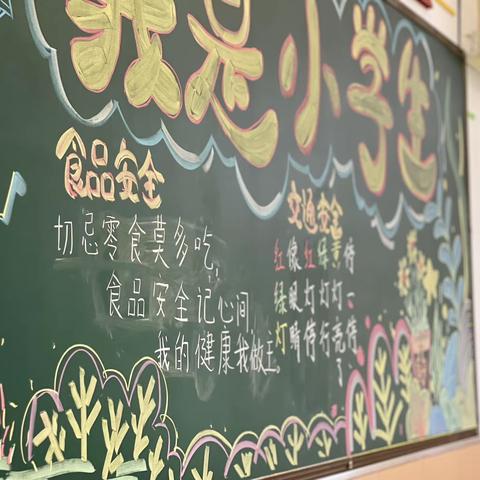 我是小学生
食品安全
切忌零食莫多吃,
食品安全记心间,
我的健康我做主。
交通安全
红绿灯
像眼睛
红灯停
绿灯行
黄灯亮了
停一停